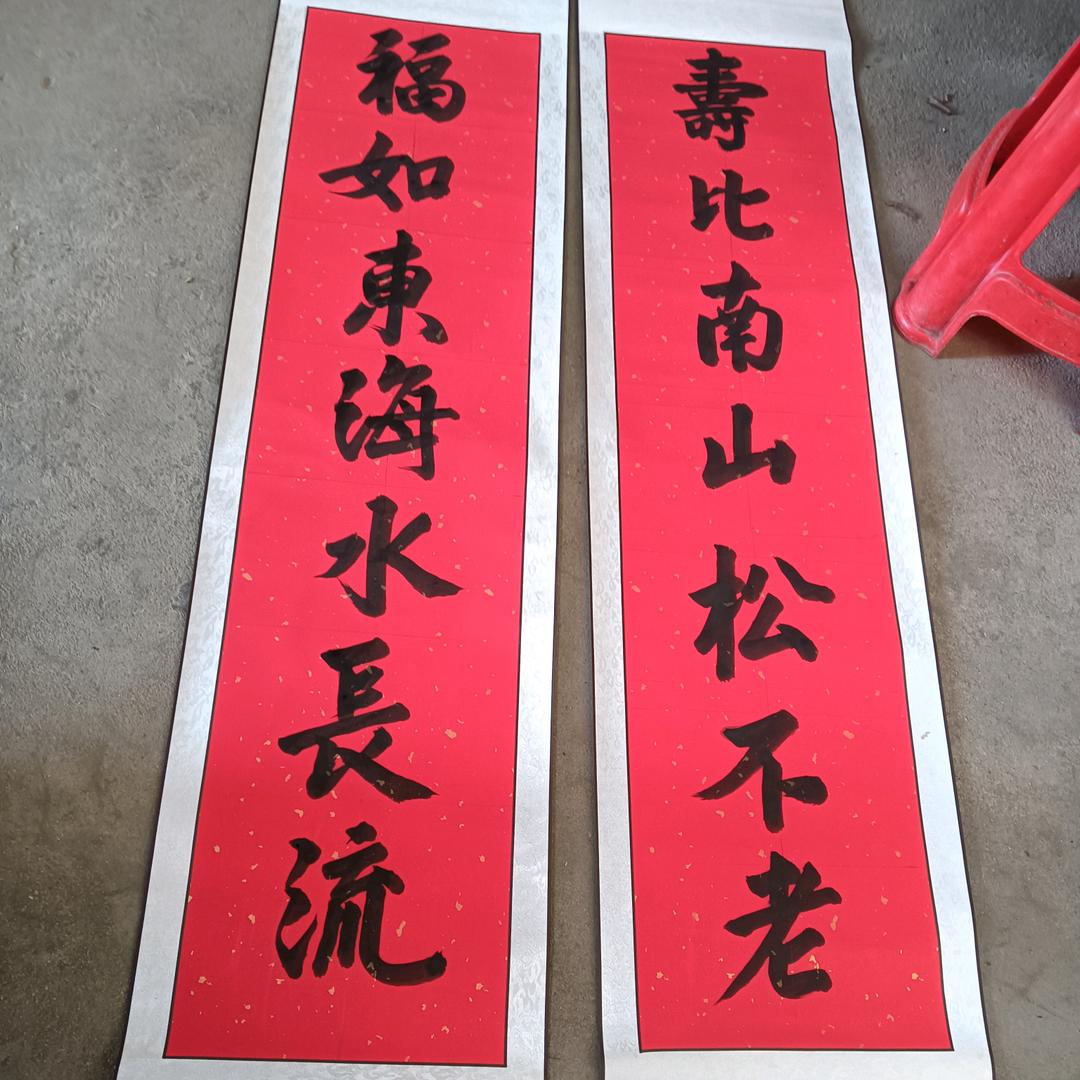 福如東海水長流
壽比南山松不老